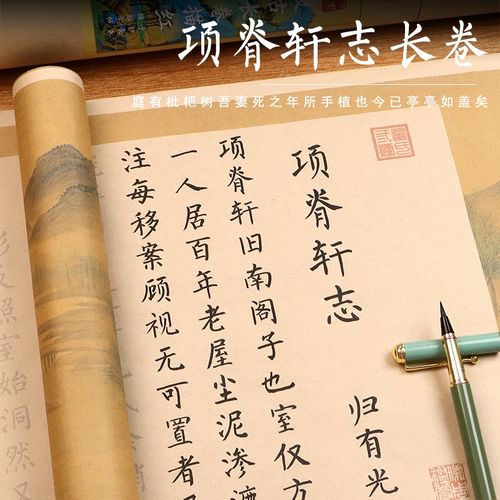 项脊轩志长卷
庭有枇杷树吾妻死之年所手植也今已亭亭如盖矣
项脊轩志
归有光
项脊轩旧南阁子也室仅方
一人居百年老屋尘泥渗
注每移案顾视无可置者
照室始洞然又